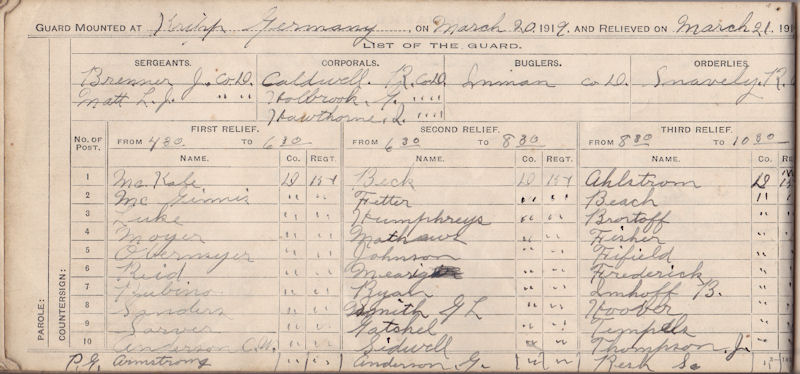 GUARD MOUNTED AT Kripp Germany, ON March 20, 1919, AND RELIEVED ON March 21, 191
LIST OF THE GUARD.
SERGEANTS. CORPORALS. BUGLERS. ORDERLIES.
Brenner J. Co D. Caldwell. R. Co D. Inman Co D. Snavely. R.
Matt L. J. " " Holbrook. G. " "
Hawthorne. L. " "
No. OF POST. FIRST RELIEF. SECOND RELIEF. THIRD RELIEF.
FROM 4 30 TO 6 30 FROM 6 30 TO 8 30 FROM 8 30 TO 10 30
NAME. Co. REGT. NAME. Co. REGT. NAME. Co. REGT.
1 Mc. Kabe D Beck D Ahlstrom D
2 Mc Ginnis " " Fetter " " Beach " "
3 Luke " " Humphreys " " Brortoff " "
4 Moyer " " " " Fisher " "
5 Obermyer " " Johnson " " Fifield " "
6 Reid " " " " Frederick " "
7 Rubino " " Byah " " Imhoff B. " "
8 Sanders " " Smith G L " " Hoover " "
9 Sarver " " Gatshel " " " "
10 Anderson C. W. " " Sidwell " " Thompson. J. " "
P. G. Armstrong " " Anderson. G. " " Resh "
PAROLE:
COUNTERSIGN: